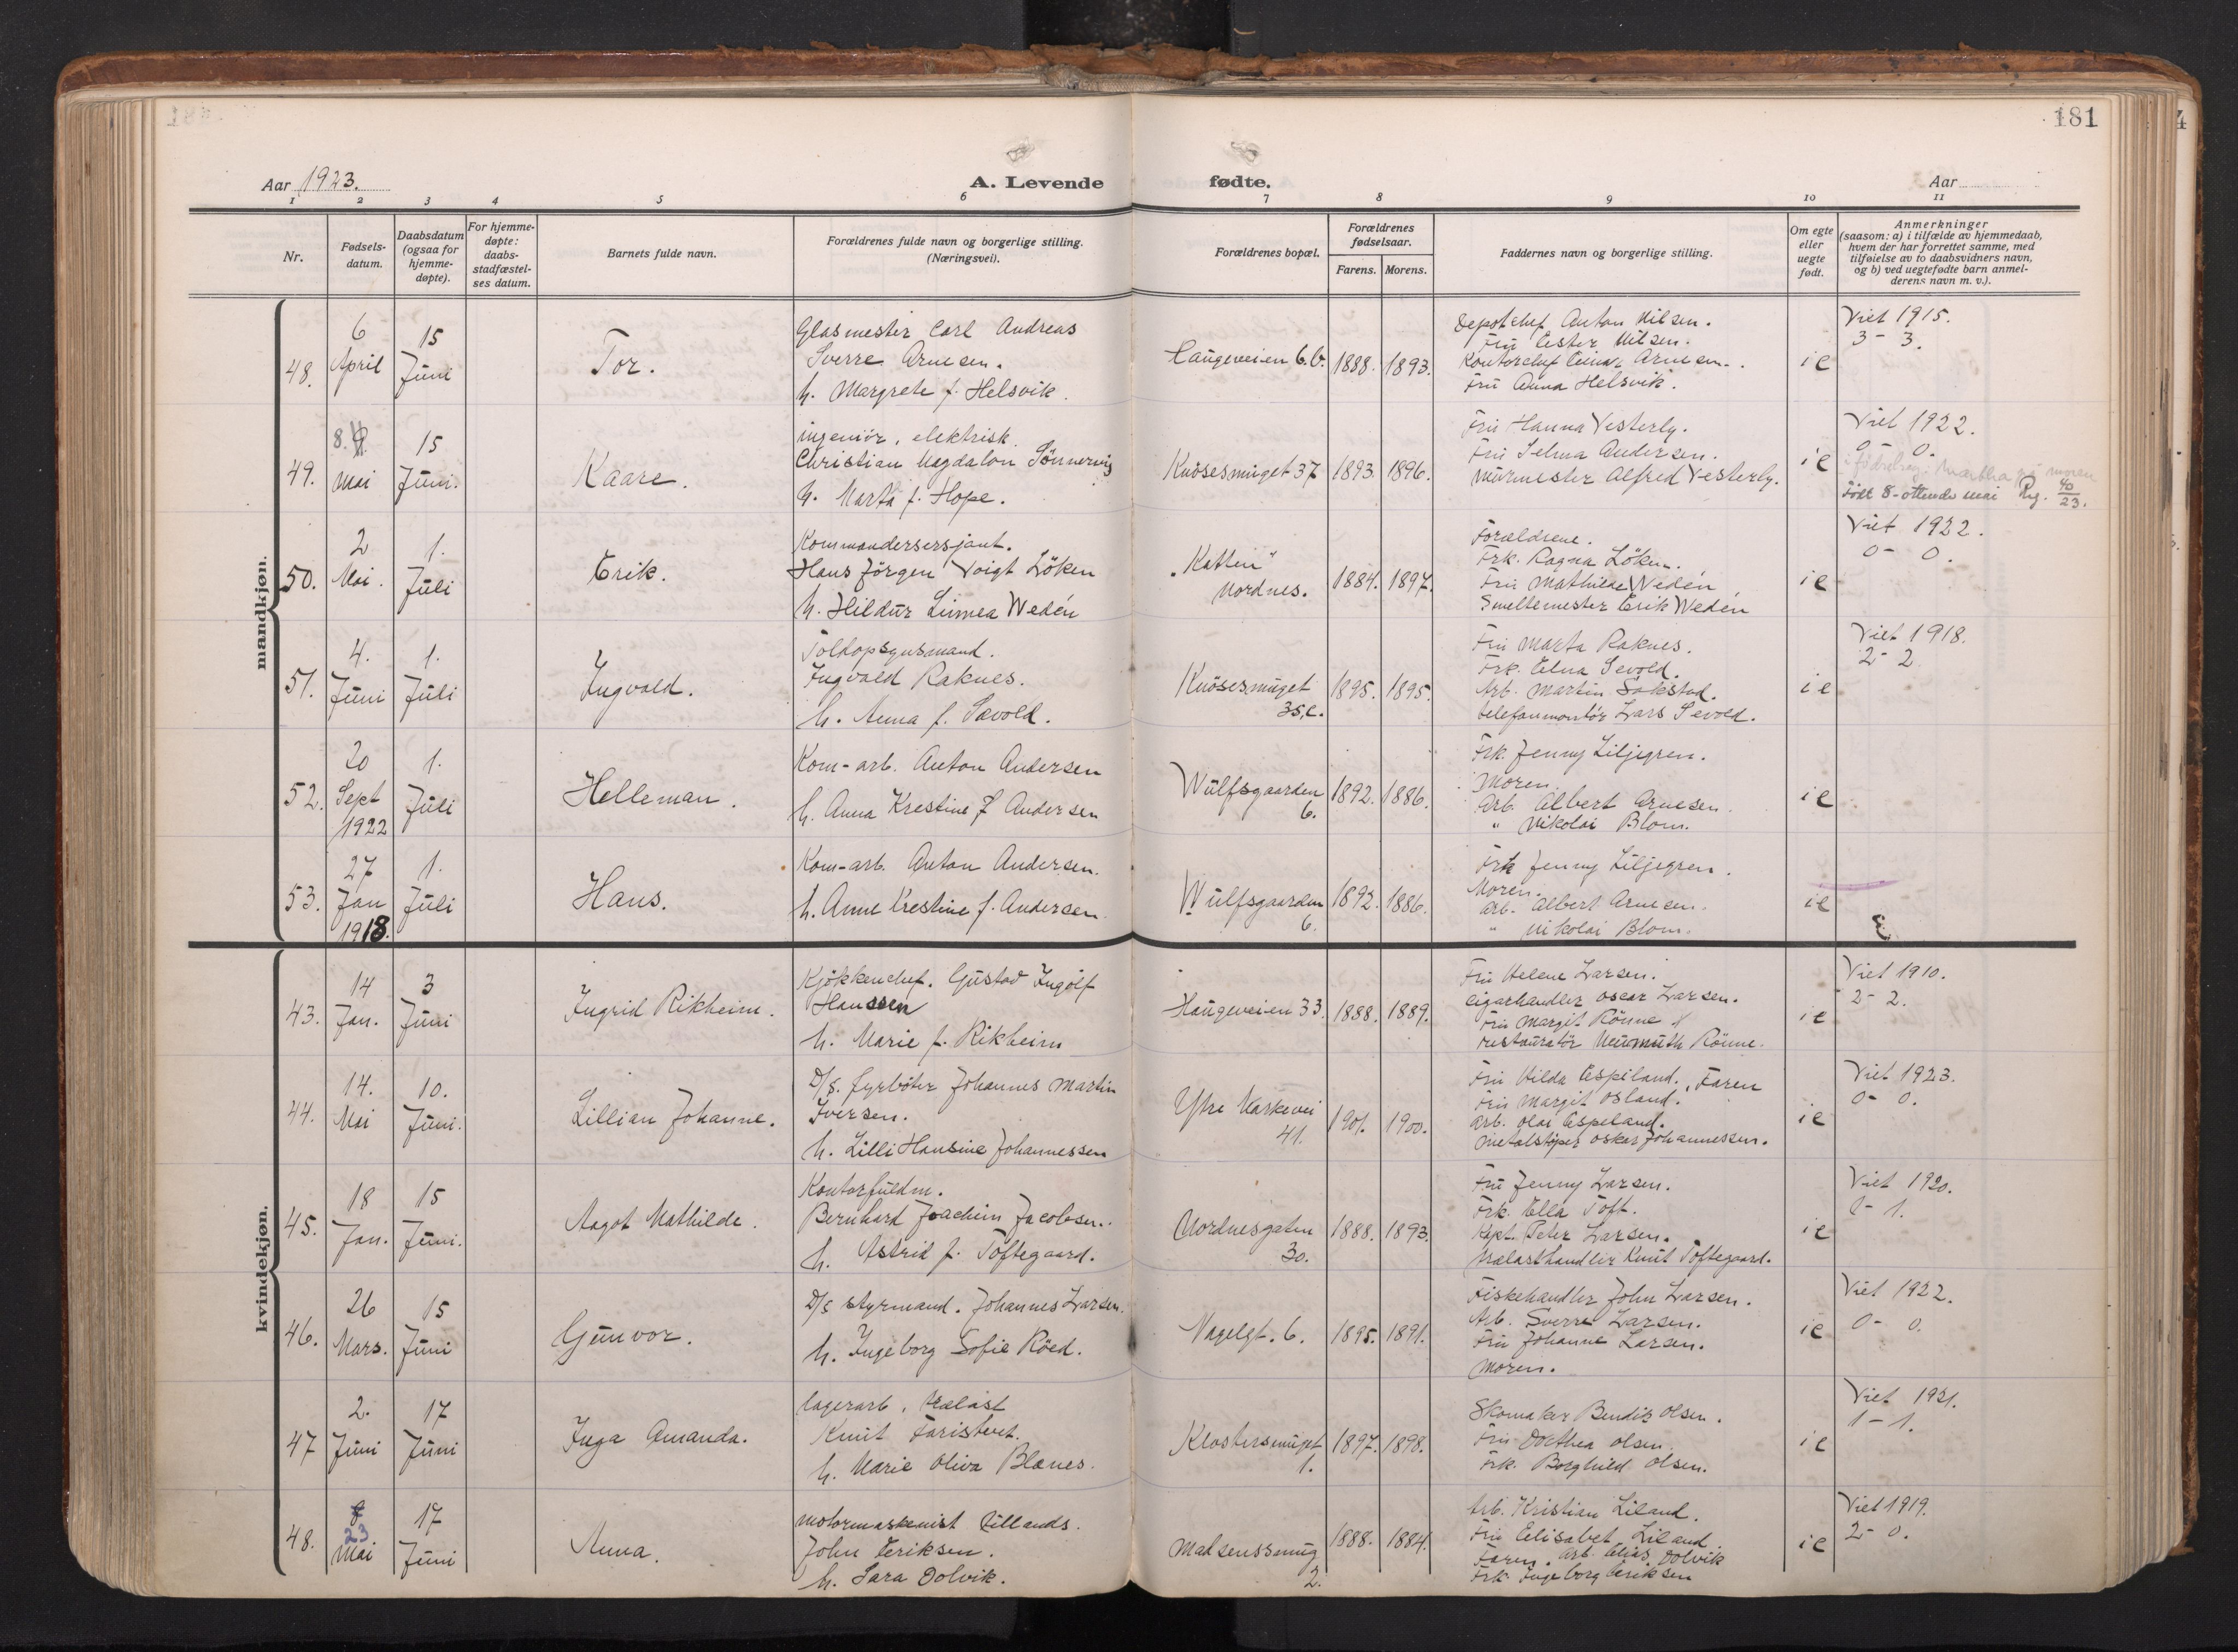 181
Aar 1923.
A. Levende fødte.
Aar
1 2 3 4 5 6 7 8 9 10 11
Nr.
Fødsels-
datum.
Daabsdatum
(ogsaa for
hjemme-
døpte).
For hjemme-
døpte:
daabs-
stadfæstel-
ses datum.
Barnets fulde navn.
Forældrenes fulde navn og borgerlige stilling.
(Næringsvei).
Forældrenes bopæl.
Forældrenes
fødselsaar.
Farens. Morens.
Faddernes navn og borgerlige stilling.
Om egte
eller
uegte
født.
Anmerkninger
(saasom: a) i tilfælde av hjemmedaab,
hvem der har forrettet samme, med
tilføielse av to daabsvidners navn,
og b) ved uegtefødte barn anmel-
derens navn m. v.).
mandkjøn.
48.
6
April
15
Juni
Tor.
Glasmester Carl Andreas
Sverre Arnesen.
h. Margrete f. Helsvik.
Haugeveien 6.b.
1888. 1893.
Depotchef Anton Nilsen.
Fru Ester Nilsen.
Kontorchef Einar Arnesen.
Fru Anna Helsvik.
ie
Viet 1915.
3 - 3.
49.
8.
Mai
15
Juni.
Kaare.
ingeniør, elektrisk.
Christian Magdalon Sönnervig
h. Marta f. Hope.
Knösesmuget 37
1893. 1896.
Fru Hanna Vesterly.
Fru Selma Andersen.
Murmester Alfred Vesterly.
ie
Viet 1922.
0 - 0.
Martha på moren
Født 8-ottende mai Rg. 40/23.
50.
2
Mai.
1.
Juli
Erik.
Kommandersersjant.
Hans Jörgen Voigt Löken
h. Hildur Linnea Wedén
"Katten"
Nordnes.
1884. 1897.
Forældrene.
Frk. Ragna Löken.
Fru Mathilde Wedén
Smeltemester Erik Wedén
ie
Viet 1922.
0 - 0.
51.
4.
Juni
1.
Juli
Ingvald.
Toldopsynsmand.
Ingvald Raknes.
h. Anna f. Sævold.
Knösesmuget
35.c.
1895. 1895.
Fru Marta Raknes.
Frk. Elna Sevold.
Arb. Martin Sakstad.
telefonmontör Lars Sevold.
ie
Viet 1918.
2 - 2
52.
20
Sept
1922
1.
Juli
Helleman.
Kom-arb. Anton Andersen
h. Anna Krestine f Andersen
Wulfsgaarden
6.
1892. 1886.
Frk. Jenny Liljegren.
Moren.
Arb. Albert Arnesen.
" Nikolai Blom.
ie
53.
27
Jan
1918.
1.
Juli
Hans.
Kom-arb. Anton Andersen.
h. Anne Krestine f. Andersen.
Wulfsgaarden
6.
1892. 1886.
Frk Jenny Liljegren.
Moren.
Arb. Albert Arnesen.
" Nikolai Blom.
ie
kvindekjøn.
43.
14
Jan.
3
Juni
Ingrid Rikheim.
Kjökkenchef. Gustav Ingolf
Hanssen
h. Marie f. Rikheim
Haugeveien 33.
1888. 1889.
Fru Helene Larsen.
Cigarhandler Oscar Larsen.
Fru Margit Rönne
restauratör Neumuth Rönne.
ie
Viet 1910.
2 - 2.
44.
14.
Mai
10.
Juni.
Lillian Johanne.
D/S. fyrböter Johannes Martin
Iversen.
h. Lilli Hansine Johannessen
Ytre Markevei
41.
1901. 1900.
Fru Hilda Espeland. Faren
Fru Margit Osland.
Arb. Olai Espeland.
Metalstöper Oskar Johannessen.
ie
Viet 1923.
0 - 0.
45.
18
Jan.
15
Juni.
Aagot Mathilde.
Kontorfuldm.
Bernhard Joachim Jacobsen.
h. Astrid f. Toftegaard.
Nordnesgaten
30.
1888. 1893.
Fru Jenny Larsen.
Frk. Ella Toft.
Kapt. Peter Larsen.
Trælasthandler Knut Toftegaard.
ie
Viet 1920.
1.
46.
26
Mars.
15
Juni
Gunvor.
D/S styrmand. Johannes Larsen.
h. Ingeborg Sofie Röed.
Nagelgt. 6.
1895. 1891.
Fiskehandler John Larsen.
Arb. Sverre Larsen.
Fru Johanne Larsen.
Moren.
ie
Viet 1922.
0 - 0.
47
2.
Juni
17
Juni
Inga Amanda.
lagerarb. trælast
Knut
h. Marie Oliva Blænes.
Klostersmuget
1.
1897. 1898.
Skomaker Bendik Olsen.
Fru Dorthea Olsen.
Frk. Borghild Olsen.
ie
Viet 1921.
1 - 1.
48.
23
Mai
17
Juni
Anna.
motormaskinist
John Eriksen.
h. Sara Dolvik.
Madsenssmug
2.
1888. 1884.
Arb. Kristian Liland.
Fru Elisabet Liland.
Faren. Arb. Elias Dolvik
Frk. Ingeborg Eriksen
ie
Viet 1919.
2 - 0.